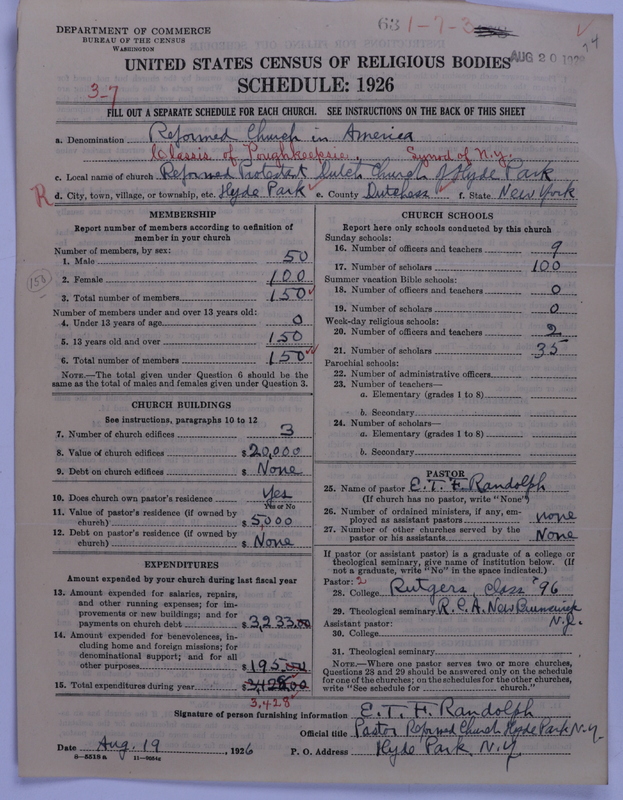 DEPARTMENT OF COMMERCE
BUREAU OF THE CENSUS
WASHINGTON
631-7-3
AUG 20 192
UNITED STATES CENSUS OF RELIGIOUS BODIES
SCHEDULE: 1926
3-7
FILL OUT A SEPARATE SCHEDULE FOR EACH CHURCH. SEE INSTRUCTIONS ON THE BACK OF THIS SHEET
a. Denomination Reformed Church in America
Classis of Poughkeepsie. Synod of N.Y.
c. Local name of church Reformed Protestant Dutch Church of Hyde Park
R d. City, town, village, or township, etc. Hyde Park e. County Dutchess f. State New York
MEMBERSHIP
Report number of members according to definition of
member in your church
Number of members, by sex:
1. Male 50
2. Female 100
153
3. Total number of members 150
Number of members under and over 13 years old:
4. Under 13 years of age 0
5. 13 years old and over 150
6. Total number of members 150
NOTE.—The total given under Question 6 should be the
same as the total of males and females given under Question 3.
CHURCH BUILDINGS
See instructions, paragraphs 10 to 12
7. Number of church edifices 3
8. Value of church edifices $20,000
9. Debt on church edifices $ None
10. Does church own pastor's residence Yes
Yes or No
11. Value of pastor's residence (if owned by
church) $ 5,000
12. Debt on pastor's residence (if owned by
church) $ None
EXPENDITURES
Amount expended by your church during last fiscal year
13. Amount expended for salaries, repairs,
and other running expenses; for im-
provements or new buildings; and for
payments on church debt $3,233.00
14. Amount expended for benevolences, in-
cluding home and foreign missions; for
denominational support; and for all
other purposes $195.00
15. Total expenditures during year $3,428.00
3,428
CHURCH SCHOOLS
Report here only schools conducted by this church
Sunday schools:
16. Number of officers and teachers 9
17. Number of scholars 100
Summer vacation Bible schools:
18. Number of officers and teachers 0
19. Number of scholars 0
Week-day religious schools:
20. Number of officers and teachers 2
21. Number of scholars 35
Parochial schools:
22. Number of administrative officers
23. Number of teachers—
a. Elementary (grades 1 to 8)
b. Secondary
24. Number of scholars—
a. Elementary (grades 1 to 8)
b. Secondary
PASTOR
25. Name of pastor E. T. F. Randolph
(If church has no pastor, write "None")
26. Number of ordained ministers, if any, em-
ployed as assistant pastors none
27. Number of other churches served by the
pastor or his assistants None
If pastor (or assistant pastor) is a graduate of a college or
theological seminary, give name of institution below. (If
not a graduate, write "No" in the space indicated.)
Pastor: 2
28. College Rutgers, Class '96
29. Theological seminary R. C. A. New Brunswick
N.J.
Assistant pastor:
30. College
31. Theological seminary
NOTE.—Where one pastor serves two or more churches,
Questions 28 and 29 should be answered only on the schedule
for one of the churches; on the schedules for the other churches,
write "See schedule for church."
Signature of person furnishing information E. T. F. Randolph
Official title Pastor Reformed Church Hyde Park N.Y.
Date Aug. 19, 1926 P. O. Address Hyde Park N.Y.
8—5518a